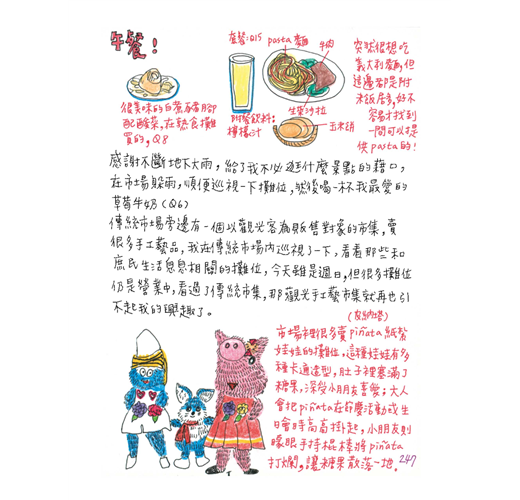 午餐!
套餐:Q15
pasta 麵
牛肉
生菜沙拉
玉米餅
附餐飲料:
檸檬汁
很美味的白煮豬腳
配酸菜,在熟食攤
買的,Q8
突然很想吃
義大利麵,但
這邊都是附
米飯居多,好不
容易才找到
一間可以提
供pasta的!
感謝不斷地下大雨,給了我不必逛什麼景點的藉口,
在市場躲雨,順便巡視一下攤位,然後喝一杯我最愛的
草莓牛奶(Q6)
傳統市場旁邊有一個以觀光客為販售對象的市集,賣
很多手工藝品,我在傳統市場內巡視了一下,看看那些和
庶民生活息息相關的攤位,今天雖是週日,但很多攤位
仍是營業中,看過了傳統市集,那觀光手工藝市集就再也引
不起我的興趣了。
(皮納塔)
市場裡很多賣piñata紙幣
娃娃的攤位,這種娃娃有多
種卡通造型,肚子裡塞滿了
糖果,深受小朋友喜愛;大人
會把piñata在節慶活動或生
日會時高高掛起,小朋友則
矇眼手持棍棒將piñata
打爛,讓糖果散落一地。
247